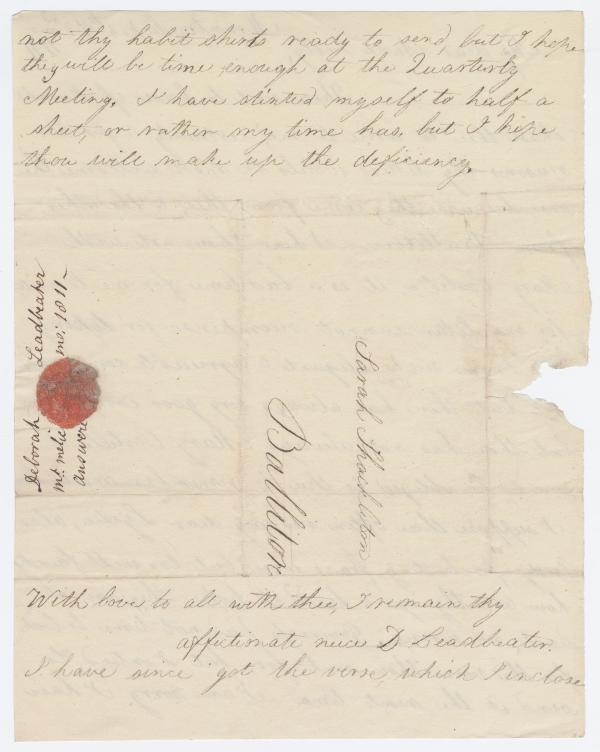 not thy habit shirts ready to send, but I hope
they will be time enough at the Quarterly
Meeting. I have stinted myself to half a
sheet, or rather my time has, but I hope
thou will make up the deficiency.
Deborah Leadbeater
Mt. melic mo: 1811-
answere
Sarah Shackleton
Ballitore
With love to all with thee, I remain thy
affectinate neice D Leadbeater.
I have since got the verse, which I inclose